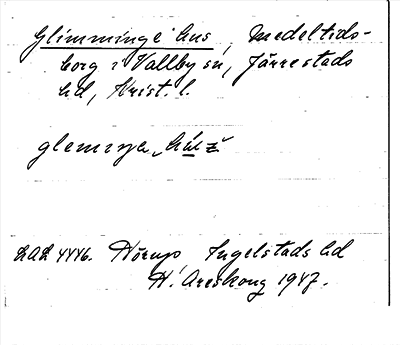 Glimminge hus, Medeltids-
borg i Vallby sn, Järrestads
hd, Krist. l.
LAL 4446. Hörup, Ingelstads hd
H. Areskoug 1947.